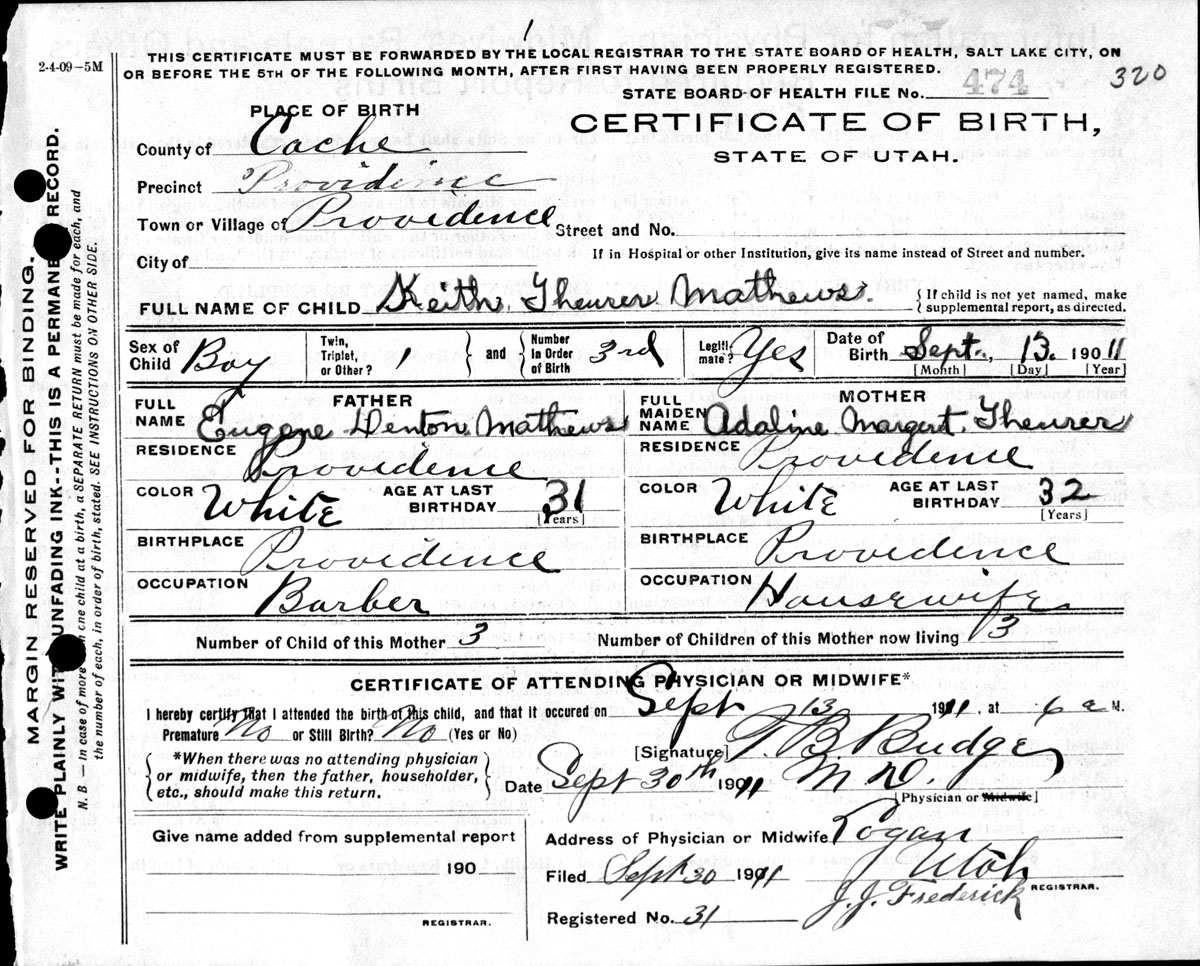 1
THIS CERTIFICATE MUST BE FORWARDED BY THE LOCAL REGISTRAR TO THE STATE BOARD OF HEALTH, SALT LAKE CITY, ON
2-4-09—5M
OR BEFORE THE 5TH OF THE FOLLOWING MONTH, AFTER FIRST HAVING BEEN PROPERLY REGISTERED.
320
STATE BOARD OF HEALTH FILE No. 474
PLACE OF BIRTH
CERTIFICATE OF BIRTH,
STATE OF UTAH.
County of Cache
Precinct Providence
Town or Village of Providence Street and No.
City of If in Hospital or other Institution, give its name instead of Street and number.
FULL NAME OF CHILD Keith Theurer Mathews. { If child is not yet named, make supplemental report, as directed.
Sex of Child Boy Twin, Triplet, or Other? 1 } and { Number in Order of Birth 3rd Legitimate? Yes Date of Birth Sept., 13. 1911
[Month] [Day] [Year]
FATHER MOTHER
FULL NAME Eugene Denton Mathews FULL MAIDEN NAME Adaline Margert Theurer
RESIDENCE Providence RESIDENCE Providence
COLOR White AGE AT LAST BIRTHDAY 31 [Years] COLOR White AGE AT LAST BIRTHDAY 32 [Years]
BIRTHPLACE Providence BIRTHPLACE Providence
OCCUPATION Barber OCCUPATION Housewife
Number of Child of this Mother 3 Number of Children of this Mother now living 3
CERTIFICATE OF ATTENDING PHYSICIAN OR MIDWIFE*
I hereby certify that I attended the birth of this child, and that it occured on Sept 13 1911, at 6 a M.
Premature No or Still Birth? No (Yes or No)
[Signature] T B Budge
M D.
*When there was no attending physician
or midwife, then the father, householder,
etc., should make this return.
Date Sept 30th 1911
[Physician or Midwife]
Give name added from supplemental report
190
REGISTRAR.
Address of Physician or Midwife Logan
Utah
Filed Sept 30 1911
J. J. Frederick REGISTRAR.
Registered No. 31
MARGIN RESERVED FOR BINDING.
WRITE PLAINLY WITH UNFADING INK--THIS IS A PERMANENT RECORD.
N. B.—In case of more than one child at a birth, a SEPARATE RETURN must be made for each, and
the number of each, in order of birth, stated. SEE INSTRUCTIONS ON OTHER SIDE.